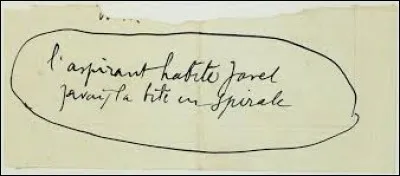 l'aspirant habite Javel
javais la bite en spirale